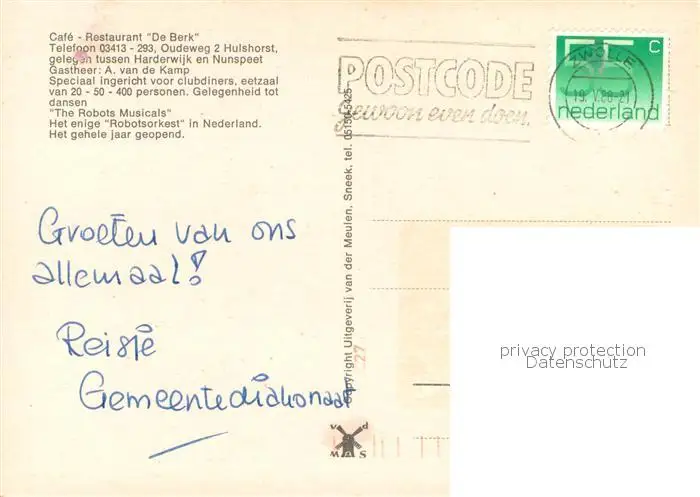 Café - Restaurant "De Berk"
Telefoon 03413 - 293, Oudeweg 2 Hulshorst,
gelegen tussen Harderwijk en Nunspeet
Gastheer: A. van de Kamp
Speciaal ingericht voor clubdiners, eetzaal
van 20 - 50 - 400 personen. Gelegenheid tot
dansen
"The Robots Musicals"
Het enige "Robotsorkest" in Nederland.
Het gehele jaar geopend.
POSTCODE
gewoon even doen.
ZWOLLE
55 c
nederland
Groeten van ons
allemaal!
Reisje
Gemeentediakonaat
Copyright Uitgeverij van der Meulen, Sneek, tel.
27
v d
M S
privacy protection
Datenschutz